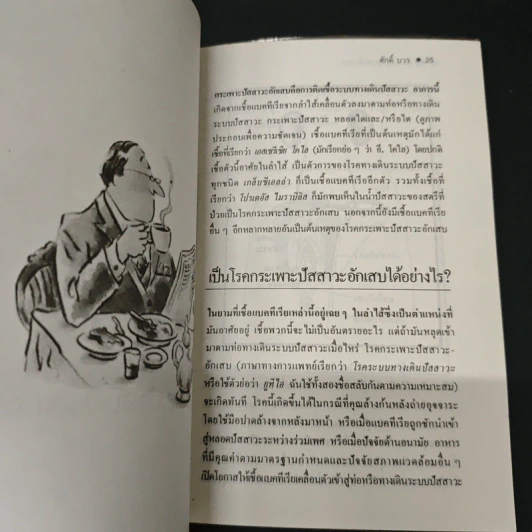 ศักดิ์ บวร ● 25
กระเพาะปัสสาวะอักเสบคือการติดเชื้อระบบทางเดินปัสสาวะ อาการนี้
เกิดจากเชื้อแบคทีเรียจากลำไส้เคลื่อนตัวลงมาตามท่อหรือทางเดิน
ระบบปัสสาวะ กระเพาะปัสสาวะ หลอดไตและ/หรือไต (ดูภาพ
ประกอบเพื่อความชัดเจน) เชื้อแบคทีเรียที่เป็นต้นเหตุมักได้แก่
เชื้อที่เรียกว่า เอสเชริเชีย โคไล (มักเรียกย่อ ๆ ว่า อี. โคไล) โดยปกติ
เชื้อตัวนี้อาศัยในลำไส้ เป็นตัวการของโรคทางเดินระบบปัสสาวะ
ทุกชนิด เกล็บซีเอลล่า ก็เป็นเชื้อแบคทีเรียอีกตัว รวมทั้งเชื้อที่
เรียกว่า โปรเตอัส ไมราบิลิส ก็มักพบเห็นในน้ำปัสสาวะของสตรีที่
ป่วยเป็นโรคกระเพาะปัสสาวะอักเสบ นอกจากนี้ยังมีเชื้อแบคทีเรีย
อื่น ๆ อีกหลากหลายอันเป็นต้นเหตุของโรคกระเพาะปัสสาวะอักเสบ
เป็นโรคกระเพาะปัสสาวะอักเสบได้อย่างไร?
ในยามที่เชื้อแบคทีเรียเหล่านี้อยู่เฉย ๆ ในลำไส้ซึ่งเป็นตำแหน่งที่
มันอาศัยอยู่ เชื้อพวกนี้จะไม่เป็นอันตรายอะไร แต่ถ้ามันหลุดเข้า
มาตามท่อทางเดินระบบปัสสาวะเมื่อไหร่ โรคกระเพาะปัสสาวะ-
อักเสบ (ภาษาทางการแพทย์เรียกว่า โรคระบบทางเดินปัสสาวะ
หรือใช้ตัวย่อว่า ยูทีไอ ฉันใช้ทั้งสองชื่อสลับกันตามความเหมาะสม)
จะเกิดทันที โรคนี้เกิดขึ้นได้ในกรณีที่คุณล้างก้นหลังถ่ายอุจจาระ
โดยใช้มือปาดล้างจากหลังมาหน้า หรือเมื่อแบคทีเรียถูกชักนำเข้า
สู่หลอดปัสสาวะระหว่างร่วมเพศ หรือเมื่อปัจจัยด้านอนามัย อาหาร
ที่มีคุณค่าตามมาตรฐานกำหนดและปัจจัยสภาพแวดล้อมอื่น ๆ
เปิดโอกาสให้เชื้อแบคทีเรียเคลื่อนตัวเข้าสู่ท่อหรือทางเดินระบบปัสสาวะ